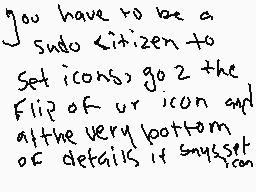 you have to be a
sudo citizen to
set icons, go 2 the
flip of ur icon and
at the very bottom
of details it says set
icon